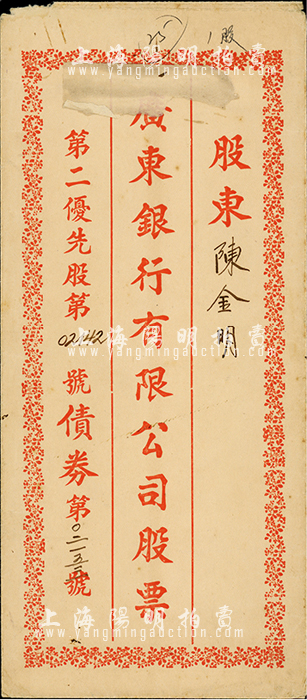 1股
股東 陳金明
廣東銀行有限公司股票
第二優先股第 號債券第 號
上海陽明拍賣
www.yangmingauction.com
上海陽明拍賣
www.yangmingauction.com
上海陽明拍賣
www.yangmingauction.com